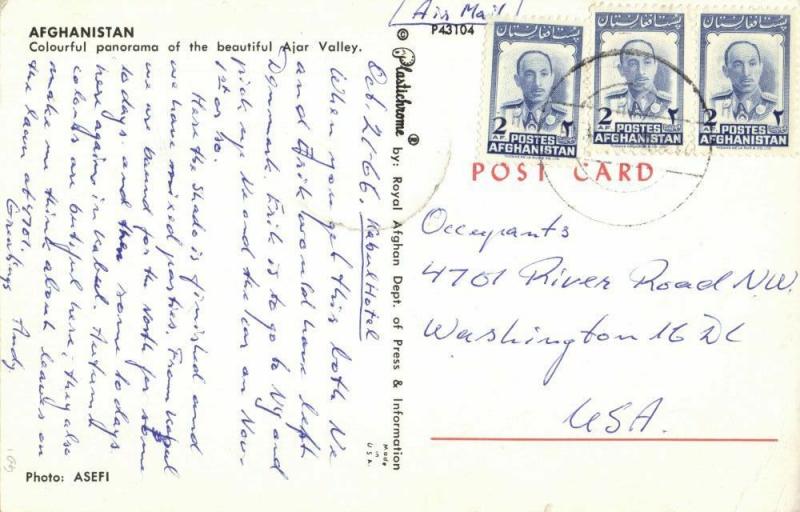 AFGHANISTAN
Colourful panorama of the beautiful Ajar Valley.
Oct. 21-66. Kabul Hotel
When you get this both Ne
and Erik would have left
Denmark. Erik is to go to NY and
pick up Ne and the car on Nov.
1st or so.
Here the Shado is finished and
we have mixed parties. From Kabul
we are bound for the North for some
10 days. and then some 10 days
here again in Kabul. Autumn
colours are butiful here, they also
make me think about leaves on
the lawn at 4701.
Greetings Andy
Photo: ASEFI
© Plastichrome ® by: Royal Afghan Dept. of Press & Information
Made
in
U.S.A.
(Air Mail)
P43104
پستۀ افغانستان
پستۀ افغانستان
پستۀ افغانستان
2 AF POSTES ۲
AFGHANISTAN
2 AF POSTES ۲
AFGHANISTAN
2 AF POSTES ۲
AFGHANISTAN
POST CARD
Occupants
4701 River Road NW.
Washington 16 DC
USA.